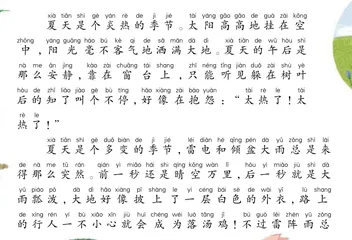 xià tiān shì gè yán rè de jì jié tài yáng gāo gāo de guà zài kōng
夏天是个炎热的季节。太阳高高地挂在空
zhōng yáng guāng háo bú kè qì de sǎ mǎn dà dì xià tiān de wǔ hòu shì
中，阳光毫不客气地洒满大地。夏天的午后是
nà me ān jìng kào zài chuāng tái shàng zhǐ néng tīng jiàn duǒ zài shù yè
那么安静，靠在窗台上，只能听见躲在树叶
hòu de zhī liǎo jiào gè bù tíng hǎo xiàng zài bào yuàn tài rè le tài
后的知了叫个不停，好像在抱怨：“太热了！太
rè le
热了！”
xià tiān shì gè duō biàn de jì jié léi diàn hé qīng pén dà yǔ zǒng shì lái
夏天是个多变的季节，雷电和倾盆大雨总是来
de nà me tū rán qián yì miǎo hái shì qíng kōng wàn lǐ hòu yì miǎo jiù shì dà
得那么突然。前一秒还是晴空万里，后一秒就是大
yǔ piáo pō dà dì hǎo xiàng pī shàng le yì céng bái sè de wài yī lù shàng
雨瓢泼，大地好像披上了一层白色的外衣，路上
de xíng rén yí bù xiǎo xīn jiù huì chéng wéi luò tāng jī bú guò léi zhèn yǔ zǒng
的行人一不小心就会成为落汤鸡！不过雷阵雨总